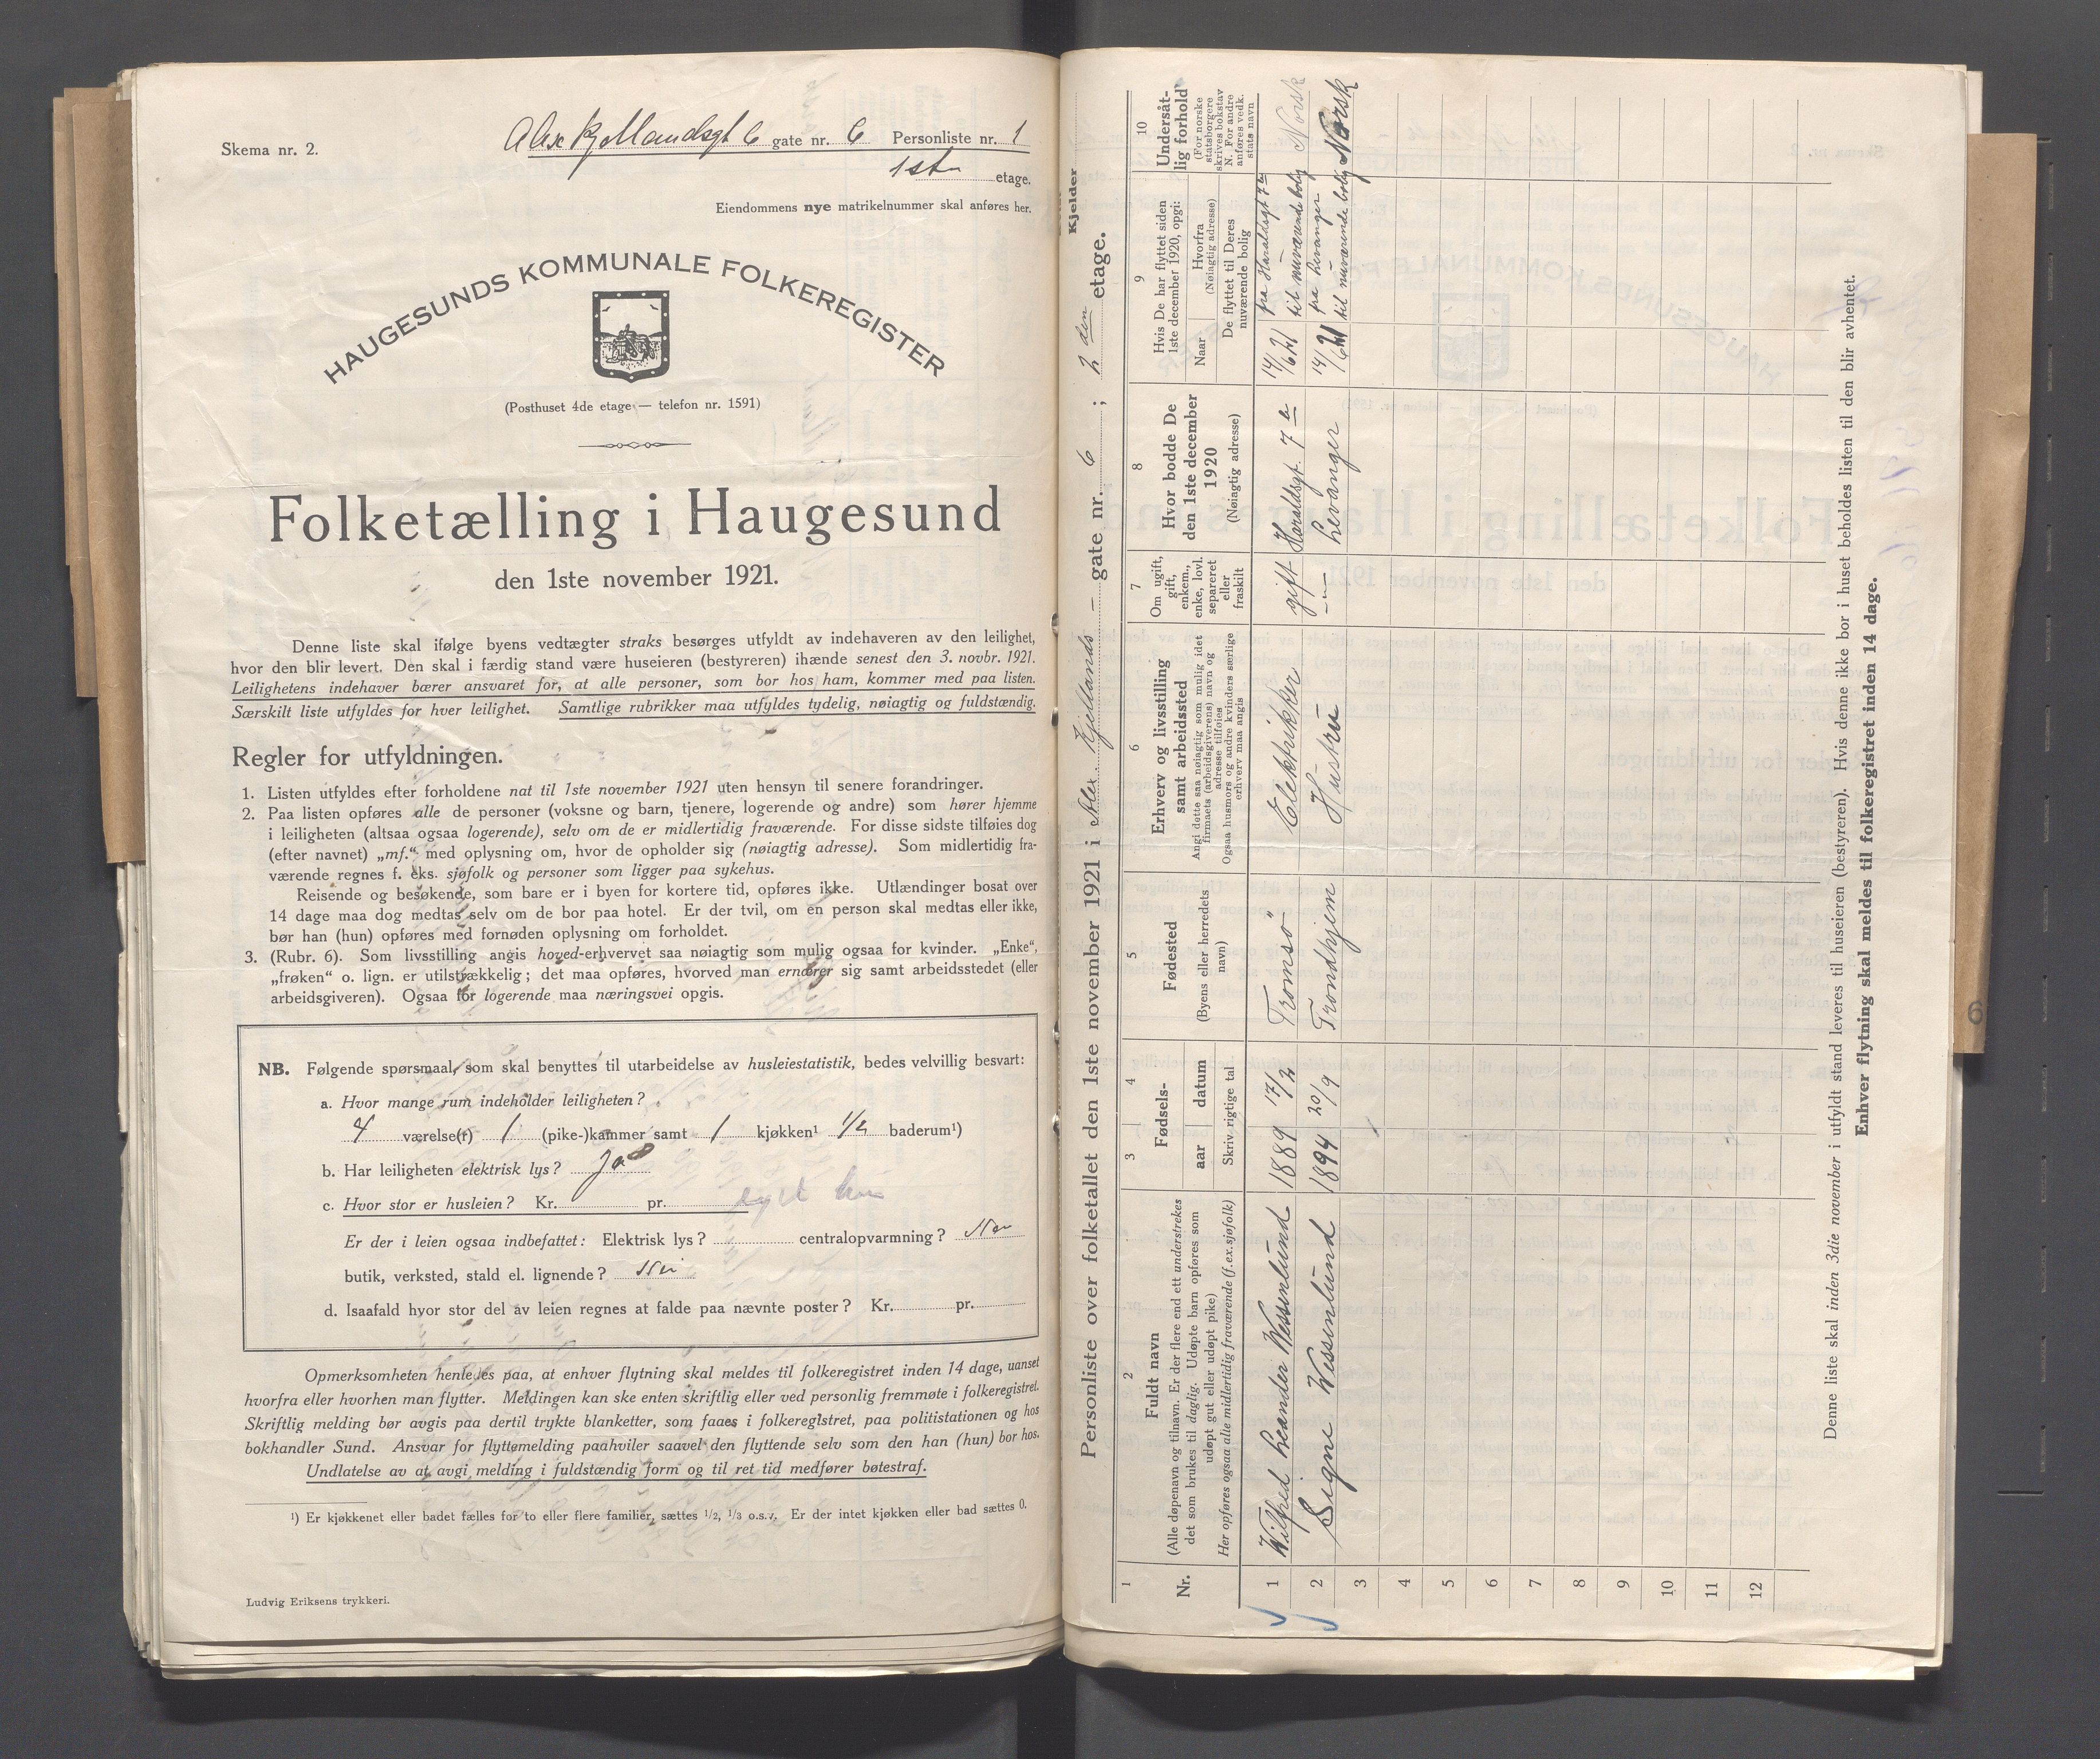 Skema nr. 2.
Alex Kjellandsgt 6 gate nr. 6 Personliste nr. 1
1ste etage.
Eiendommens nye matrikelnummer skal anføres her.
HAUGESUNDS KOMMUNALE FOLKEREGISTER
(Posthuset 4de etage — telefon nr. 1591)
Folketælling i Haugesund
den 1ste november 1921.
Denne liste skal ifølge byens vedtægter straks besørges utfyldt av indehaveren av den leilighet,
hvor den blir levert. Den skal i færdig stand være huseieren (bestyreren) ihænde senest den 3. novbr. 1921.
Leilighetens indehaver bærer ansvaret for, at alle personer, som bor hos ham, kommer med paa listen.
Særskilt liste utfyldes for hver leilighet. Samtlige rubrikker maa utfyldes tydelig, nøiagtig og fuldstændig.
Regler for utfyldningen.
1. Listen utfyldes efter forholdene nat til 1ste november 1921 uten hensyn til senere forandringer.
2. Paa listen opføres alle de personer (voksne og barn, tjenere, logerende og andre) som hører hjemme
i leiligheten (altsaa ogsaa logerende), selv om de er midlertidig fraværende. For disse sidste tilføies dog
(efter navnet) „mf.“ med oplysning om, hvor de opholder sig (nøiagtig adresse). Som midlertidig fra-
værende regnes f. eks. sjøfolk og personer som ligger paa sykehus.
Reisende og besøkende, som bare er i byen for kortere tid, opføres ikke. Utlændinger bosat over
14 dage maa dog medtas selv om de bor paa hotel. Er der tvil, om en person skal medtas eller ikke,
bør han (hun) opføres med fornøden oplysning om forholdet.
3. (Rubr. 6). Som livsstilling angis hoved-erhvervet saa nøiagtig som mulig ogsaa for kvinder. „Enke“,
„frøken“ o. lign. er utilstrækkelig; det maa opføres, hvorved man ernærer sig samt arbeidsstedet (eller
arbeidsgiveren). Ogsaa for logerende maa næringsvei opgis.
NB. Følgende spørsmaal, som skal benyttes til utarbeidelse av husleiestatistik, bedes velvillig besvart:
a. Hvor mange rum indeholder leiligheten?
4 værelse(r) 1 (pike-)kammer samt 1 kjøkken¹ 1/2 baderum¹)
b. Har leiligheten elektrisk lys? Ja
c. Hvor stor er husleien? Kr. pr. eget hus
Er der i leien ogsaa indbefattet: Elektrisk lys? centralopvarmning? Nei
butik, verksted, stald el. lignende? Nei
d. Isaafald hvor stor del av leien regnes at falde paa nævnte poster? Kr. pr.
Opmerksomheten henledes paa, at enhver flytning skal meldes til folkeregistret inden 14 dage, uanset
hvorfra eller hvorhen man flytter. Meldingen kan ske enten skriftlig eller ved personlig fremmøte i folkeregistret.
Skriftlig melding bør avgis paa dertil trykte blanketter, som faaes i folkeregistret, paa politistationen og hos
bokhandler Sund. Ansvar for flyttemelding paahviler saavel den flyttende selv som den han (hun) bor hos.
Undlatelse av at avgi melding i fuldstændig form og til ret tid medfører bøtestraf.
¹) Er kjøkkenet eller badet fælles for to eller flere familier, sættes 1/2, 1/3 o.s.v. Er der intet kjøkken eller bad sættes 0.
Ludvig Eriksens trykkeri.
Kjelder
Personliste over folketallet den 1ste november 1921 i Alex Kjellands - gate nr. 6 ; 2 den etage.
1 2 3 4 5 6 7 8 9 10
Nr.
Fuldt navn
(Alle døpenavn og tilnavn. Er der flere end ett understrekes
det som brukes til daglig. Udøpte barn opføres som
udøpt gut eller udøpt pike)
Her opføres ogsaa alle midlertidig fraværende (f.ex.sjøfolk)
Fødsels-
aar datum
Skriv rigtige tal
Fødested
(Byens eller herredets
navn)
Erhverv og livsstilling
samt arbeidssted
Angi dette saa nøiagtig som mulig idet
firmaets (arbeidsgiverens) navn og
adresse tilføies
Ogsaa husmors og andre kvinders særlige
erhverv maa angis
Om ugift,
gift,
enkem.,
enke, lovl.
separeret
eller
fraskilt
Hvor bodde De
den 1ste december
1920
(Nøiagtig adresse)
Hvis De har flyttet siden
1ste december 1920, opgi:
Naar
Hvorfra
(Nøiagtig adresse)
De flyttet til Deres
nuværende bolig
Undersåt-
lig forhold
(For norske
statsborgere
skrives bokstav
N. For andre
anføres vedk.
stats navn
1 Wilfred Leander Wessenlund 1889 17/2 Tromsö Elektrikker gift Haraldsgt. 7 b 14/6 21 fra Haraldsgt 7 b til nuværende bolig Norsk
2 Signe Wessenlund 1894 20/9 Trondhjem Hustru -"- Levanger 14/6 21 fra Levanger til nuværende bolig Norsk
3
4
5
6
7
8
9
10
11
12
Denne liste skal inden 3die november i utfyldt stand leveres til huseieren (bestyreren). Hvis denne ikke bor i huset beholdes listen til den blir avhentet.
Enhver flytning skal meldes til folkeregistret inden 14 dage.
6